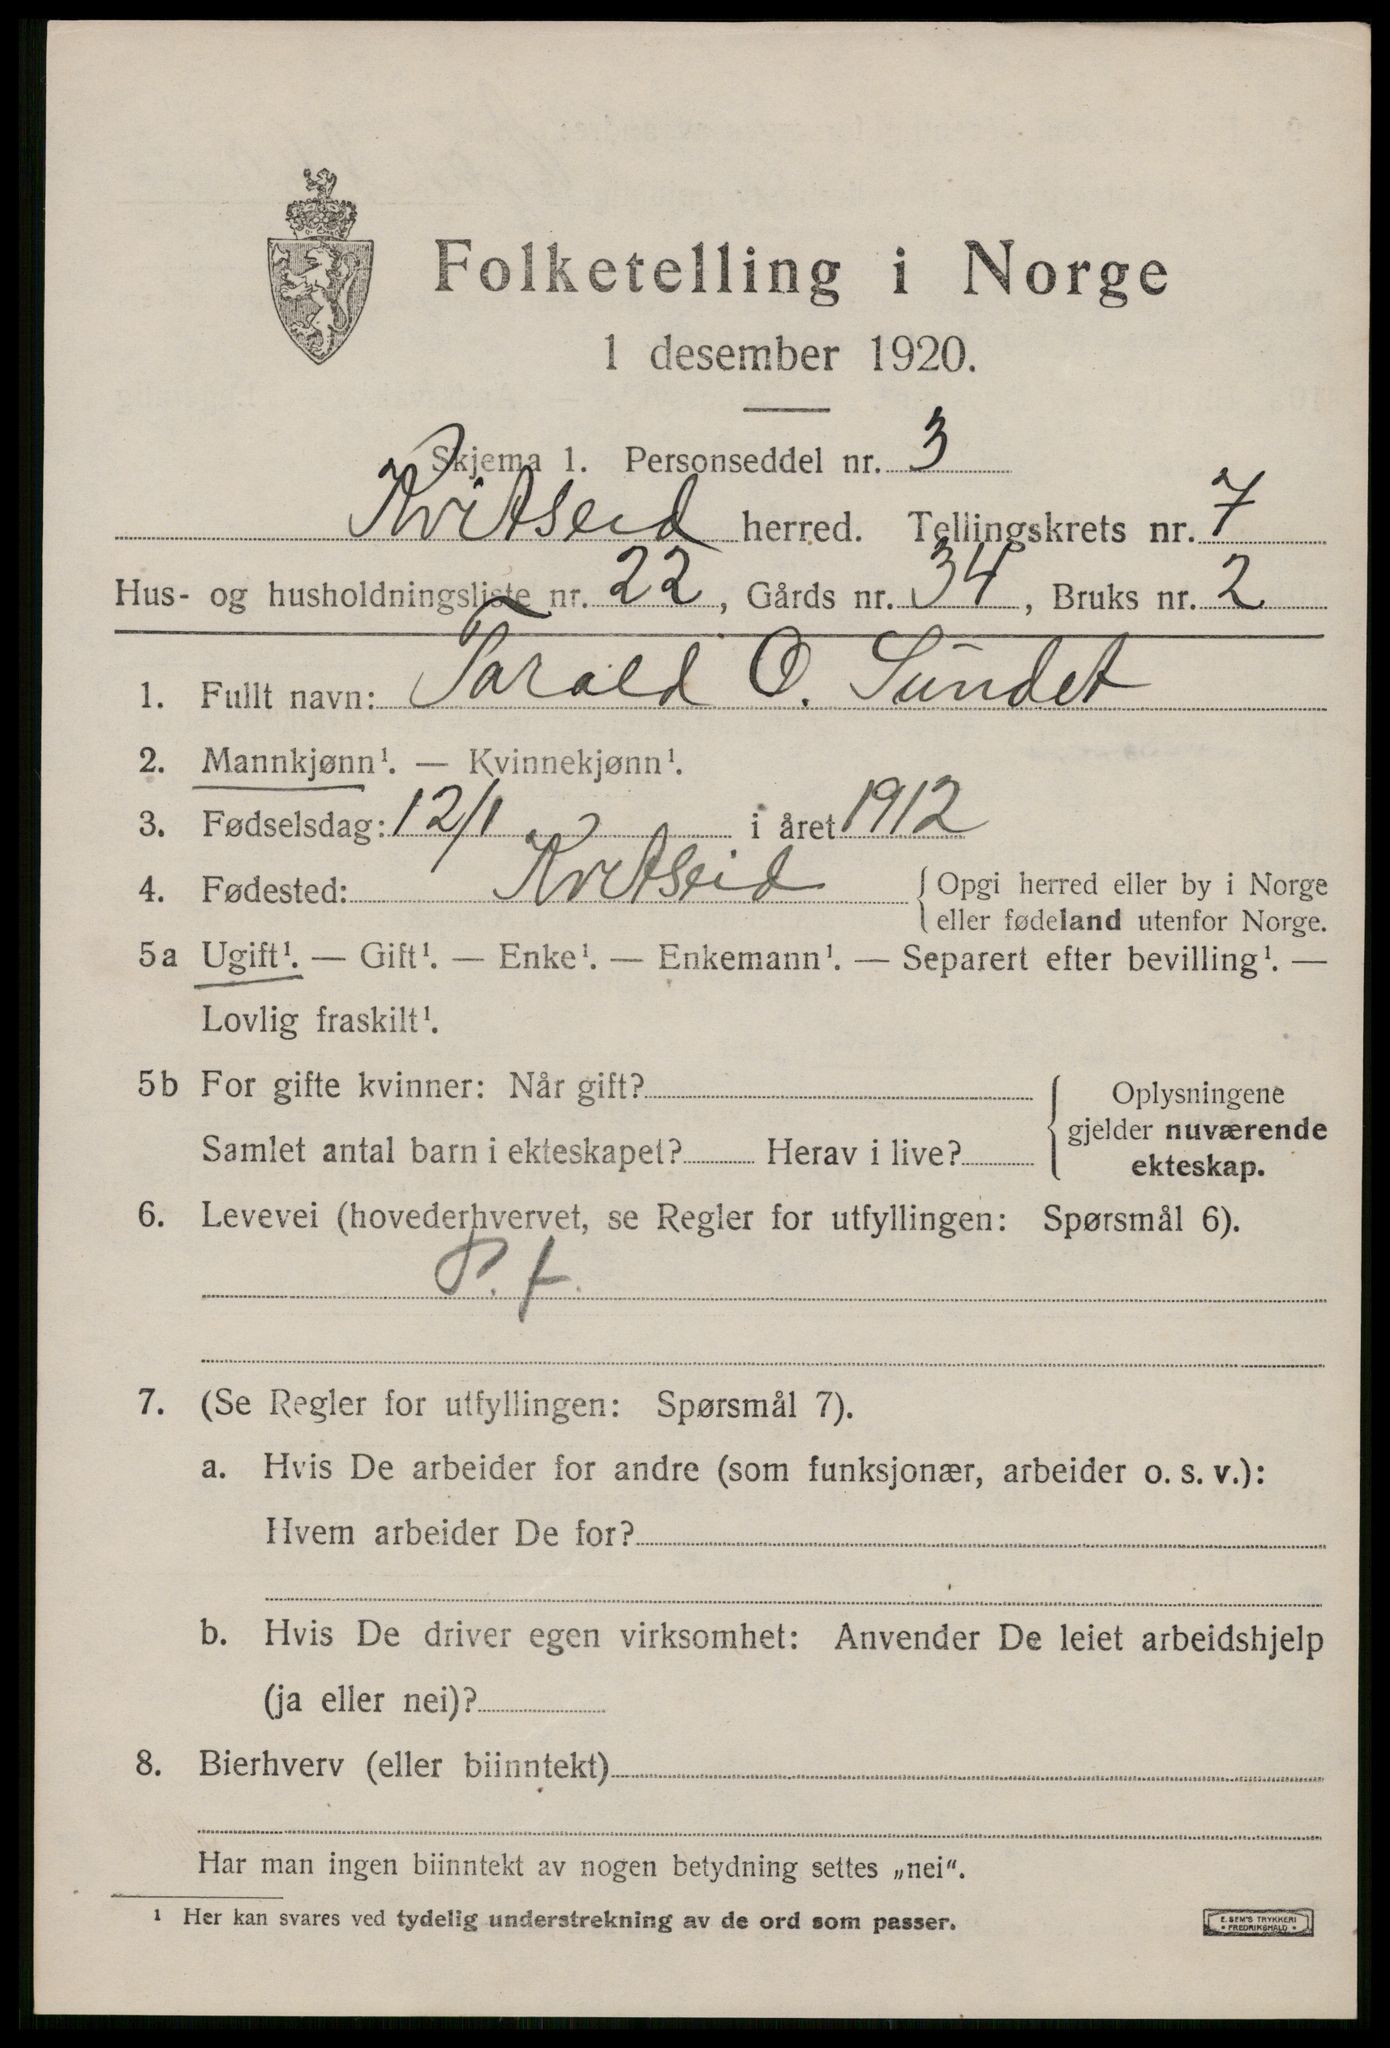 Folketelling i Norge
1 desember 1920.
Skjema 1. Personseddel nr. 3
Kvitseid herred. Tellingskrets nr. 7
Hus- og husholdningsliste nr. 22, Gårds nr. 34, Bruks nr. 2
1. Fullt navn: Tarald O. Sundet
2. Mannkjønn¹. — Kvinnekjønn¹.
3. Fødselsdag: 12/1 i året 1912
4. Fødested: Kvitseid { Opgi herred eller by i Norge
eller fødeland utenfor Norge.
5a Ugift¹. — Gift¹. — Enke¹. — Enkemann¹. — Separert efter bevilling¹. —
Lovlig fraskilt¹.
5b For gifte kvinner: Når gift?
Samlet antal barn i ekteskapet? Herav i live?
Oplysningene
gjelder nuværende
ekteskap.
6. Levevei (hovederhvervet, se Regler for utfyllingen: Spørsmål 6).
P. f.
7. (Se Regler for utfyllingen: Spørsmål 7).
a. Hvis De arbeider for andre (som funksjonær, arbeider o. s. v.):
Hvem arbeider De for?
b. Hvis De driver egen virksomhet: Anvender De leiet arbeidshjelp
(ja eller nei)?
8. Bierhverv (eller biinntekt)
Har man ingen biinntekt av nogen betydning settes „nei“.
¹ Her kan svares ved tydelig understrekning av de ord som passer.
E. SEM'S TRYKKERI
• FREDRIKSHALD •